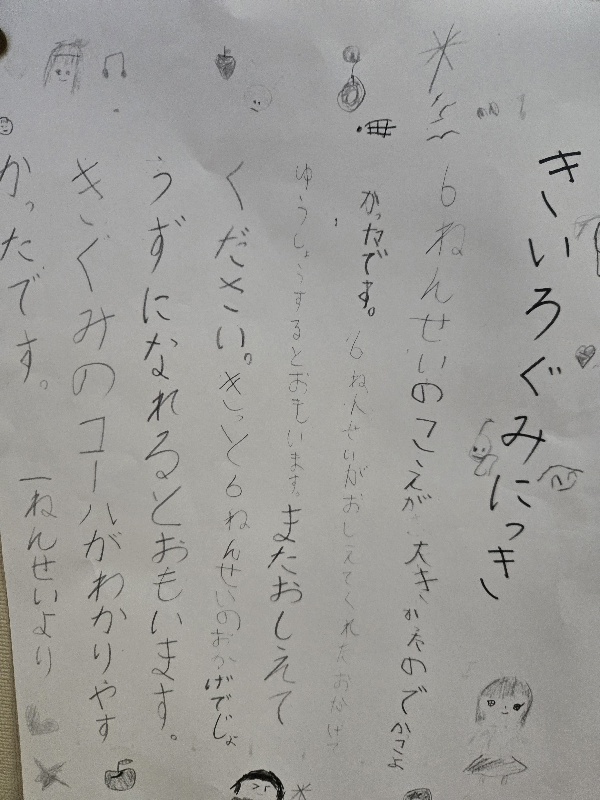 きいろぐみにっき
6ねんせいのこえが大きかたのでかっこよ
かったです。6ねんせいがおしえてくれたおかげで
ゆうしょうするとおもいます。またおしえて
ください。きっと6ねんせいのおかげでじょ
うずになれるとおもいます。
きぐみのコールがわかりやす
かったです。
一ねんせいより